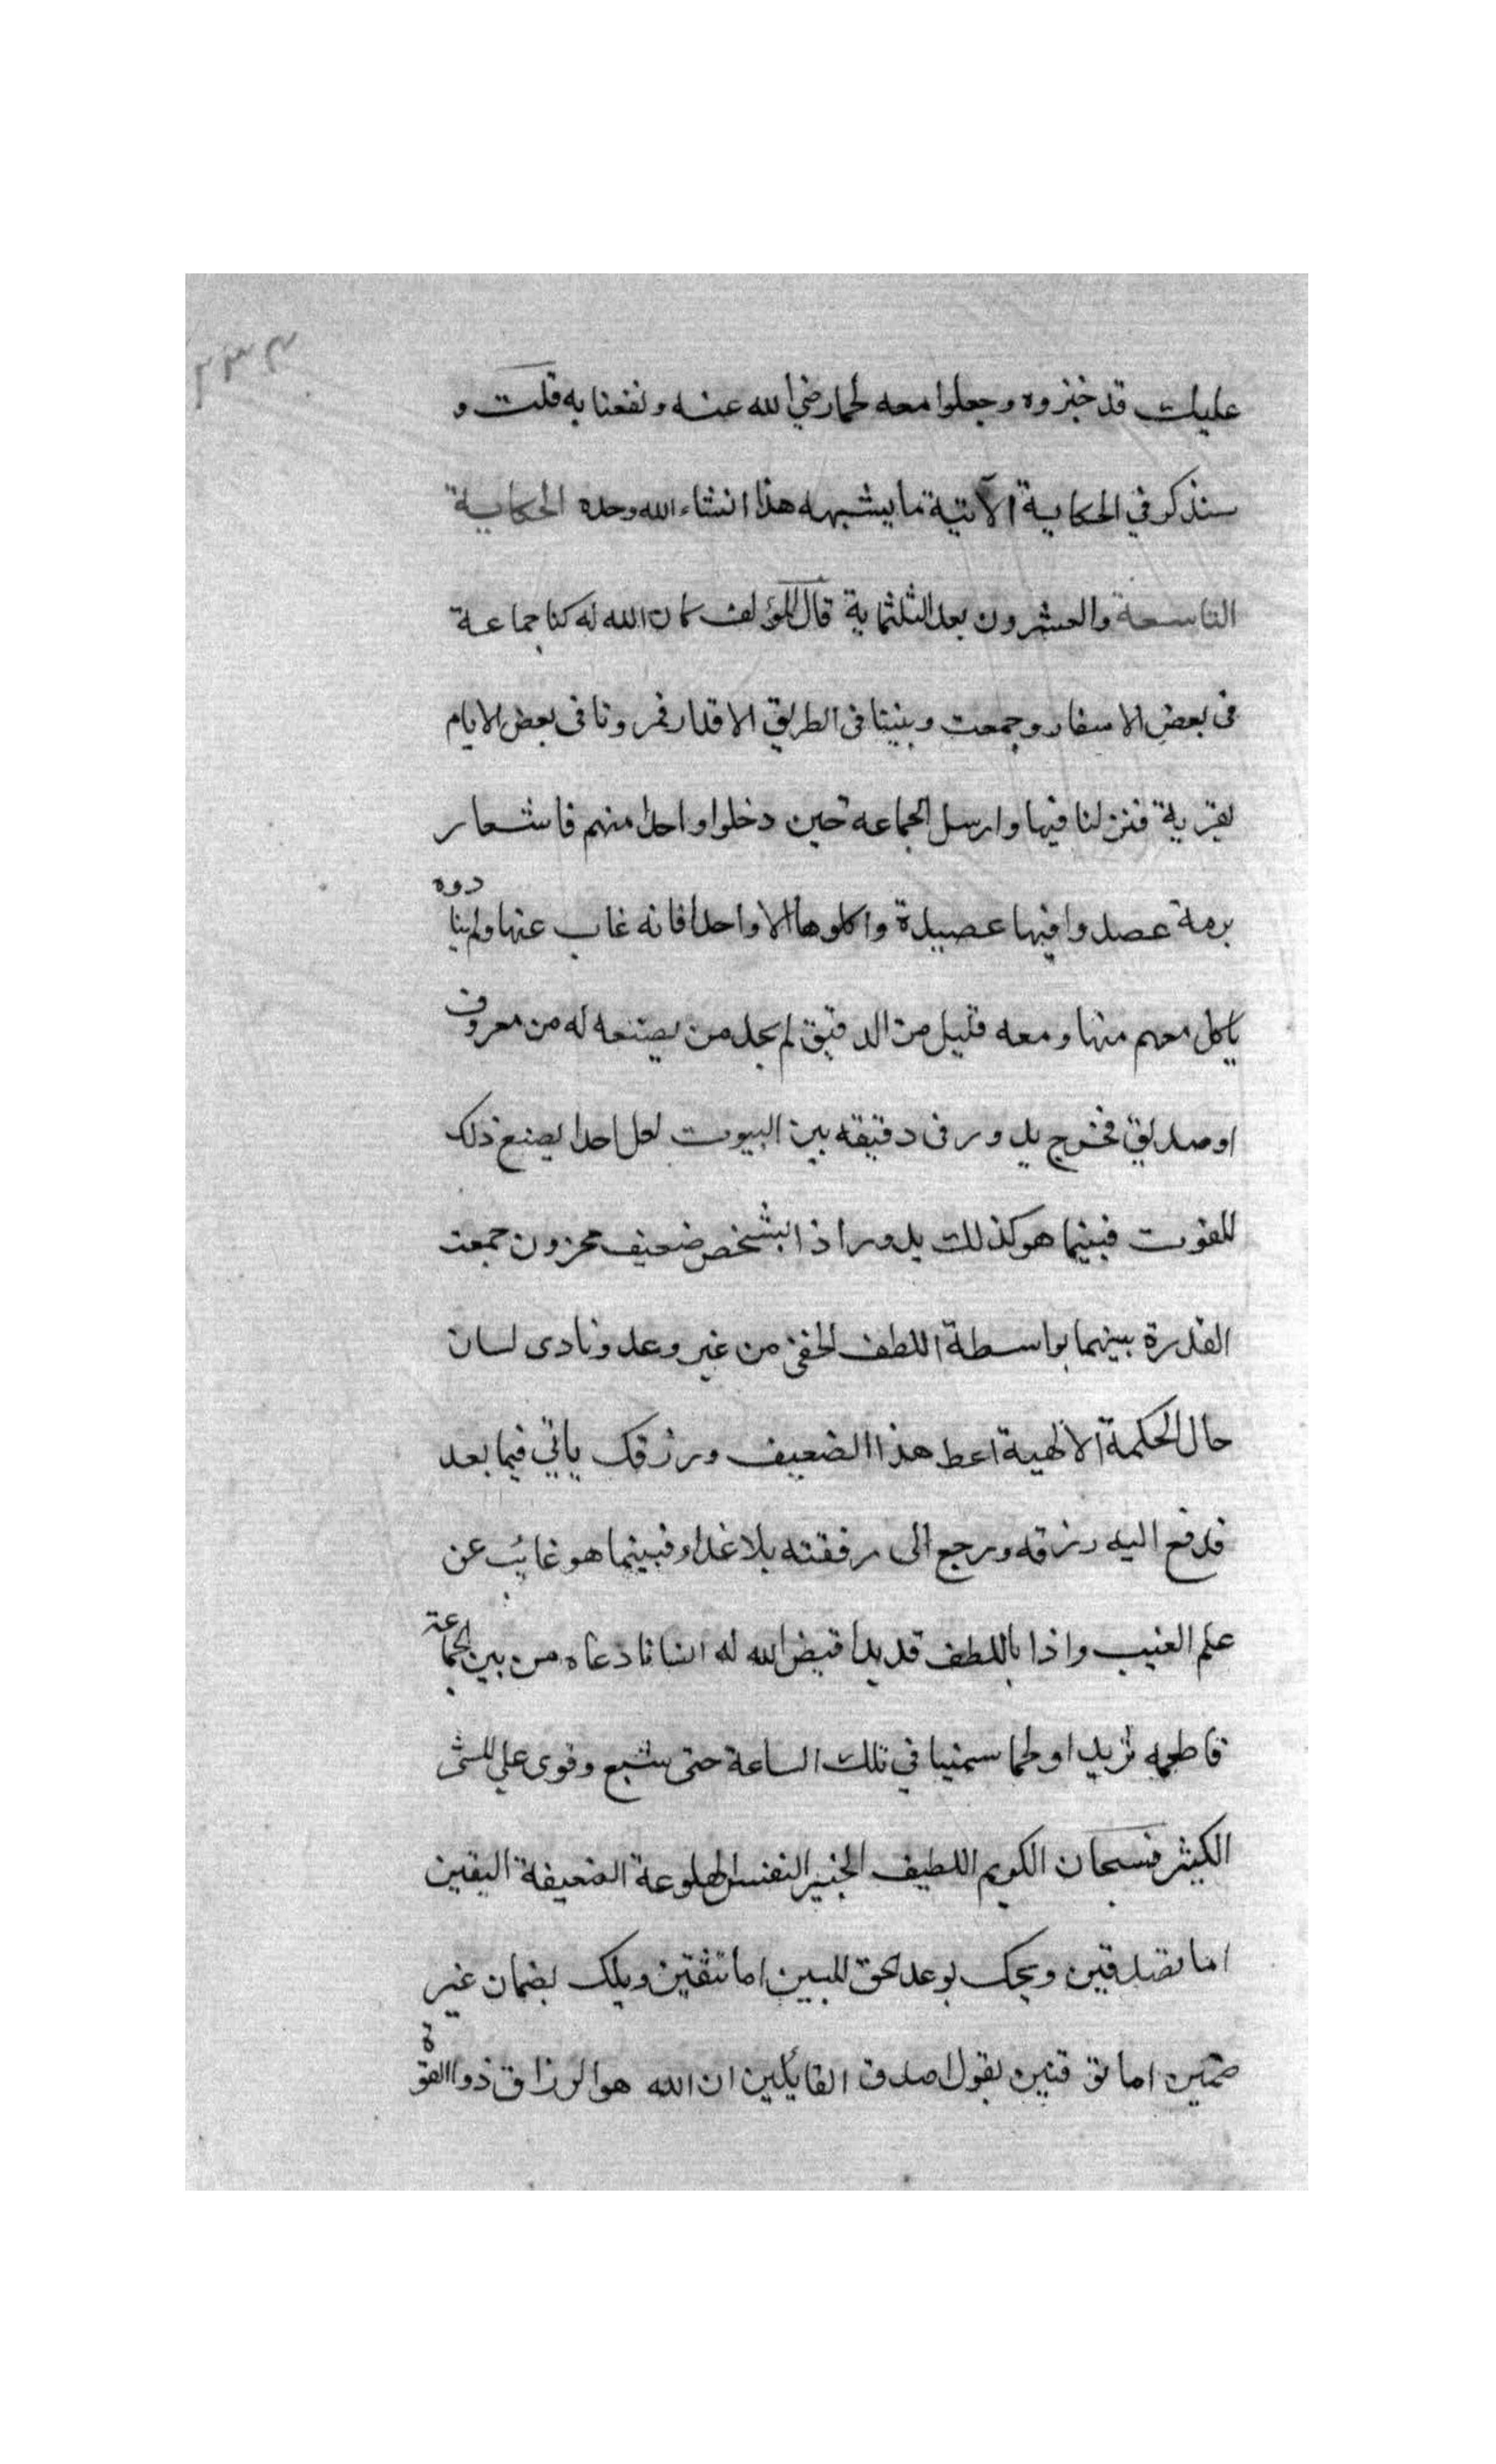 ٣٣٣
عليك قد خبزوه وجعلوا معه لحما رضي الله عنه ونفعنا به قلت و
سنذكر في الحكاية الآتية ما يشبهه هذا انشاء الله وحده الحكاية
التاسعة والعشرون بعد الثلثماية قال المؤلف كان الله له كنا جماعة
فى بعض الاسفار وجمعت وبيننا فى الطريق الاقدار فمرونا فى بعض الايام
بقرية فنزلنا فيها وارسل الجماعة حين دخلوا واحدا منهم فاستعار
برمة عصدوا فيها عصيدة واكلوها الا واحدا فانه غاب عنها ولم ينادوه
ياكل معهم منها ومعه قليل من الدقيق لم يجد من يصنعه له من معروف
او صديق فخرج يدور فى دقيقه بين البيوت لعل احدا يصنع ذلك
للقوت فبينما هو كذلك يدور اذا بشخص ضعيف محزون جمعت
القدرة بينهما بواسطة اللطف الخفي من غير وعد ونادى لسان
حال الحكمة الالهية اعط هذا الضعيف ورزقك ياتي فيما بعد
فدفع اليه رزقه ورجع الى رفقته بلا غداء فبينما هو غائب عن
علم الغيب واذا باللطف قد بدا قيض الله له انسانا دعاه من بين الجماعة
فاطعمه ثريدا ولحما سمينا في تلك الساعة حتى شبع وقوى علي المشى
الكثير فسبحان الكريم اللطيف الخبير النفس الهلوعة الضعيفة اليقين
اما تصدقين ويحك بوعد الحق المبين اما تثقين ويلك بضمان غير
ضمين اما توقنين بقول اصدق القائلين ان الله هو الرزاق ذو القوة